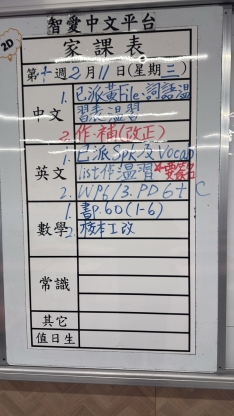 2D
智愛中文平台
家課表
第十週2月11日(星期三)
中文
1. 已派黃File.詞語溫
習表溫習
2. 作.補(改正)
英文
1. 已派Spk及Vocab
list作溫習 *要簽名
2. WP6/3.PD6+C
數學
1. 書P.60(1-6)
2. 校本工改
常識
其它
值日生